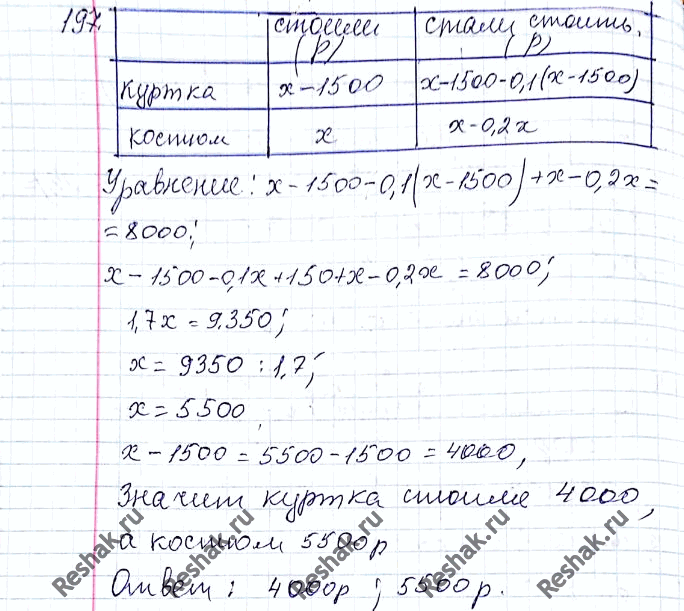 197.
стоили (р) стали стоить. (р)
куртка x-1500 x-1500-0,1(x-1500)
костюм x x-0,2x
Уравнение: x-1500-0,1(x-1500)+x-0,2x=
=8000;
x-1500-0,1x+150+x-0,2x=8000;
1,7x=9.350;
x=9350:1,7;
x=5500
x-1500=5500-1500=4000,
Значит куртка стоила 4000,
а костюм 5500р
Ответ: 4000р; 5500р.
Reshak.ru Reshak.ru Reshak.ru Reshak.ru Reshak.ru